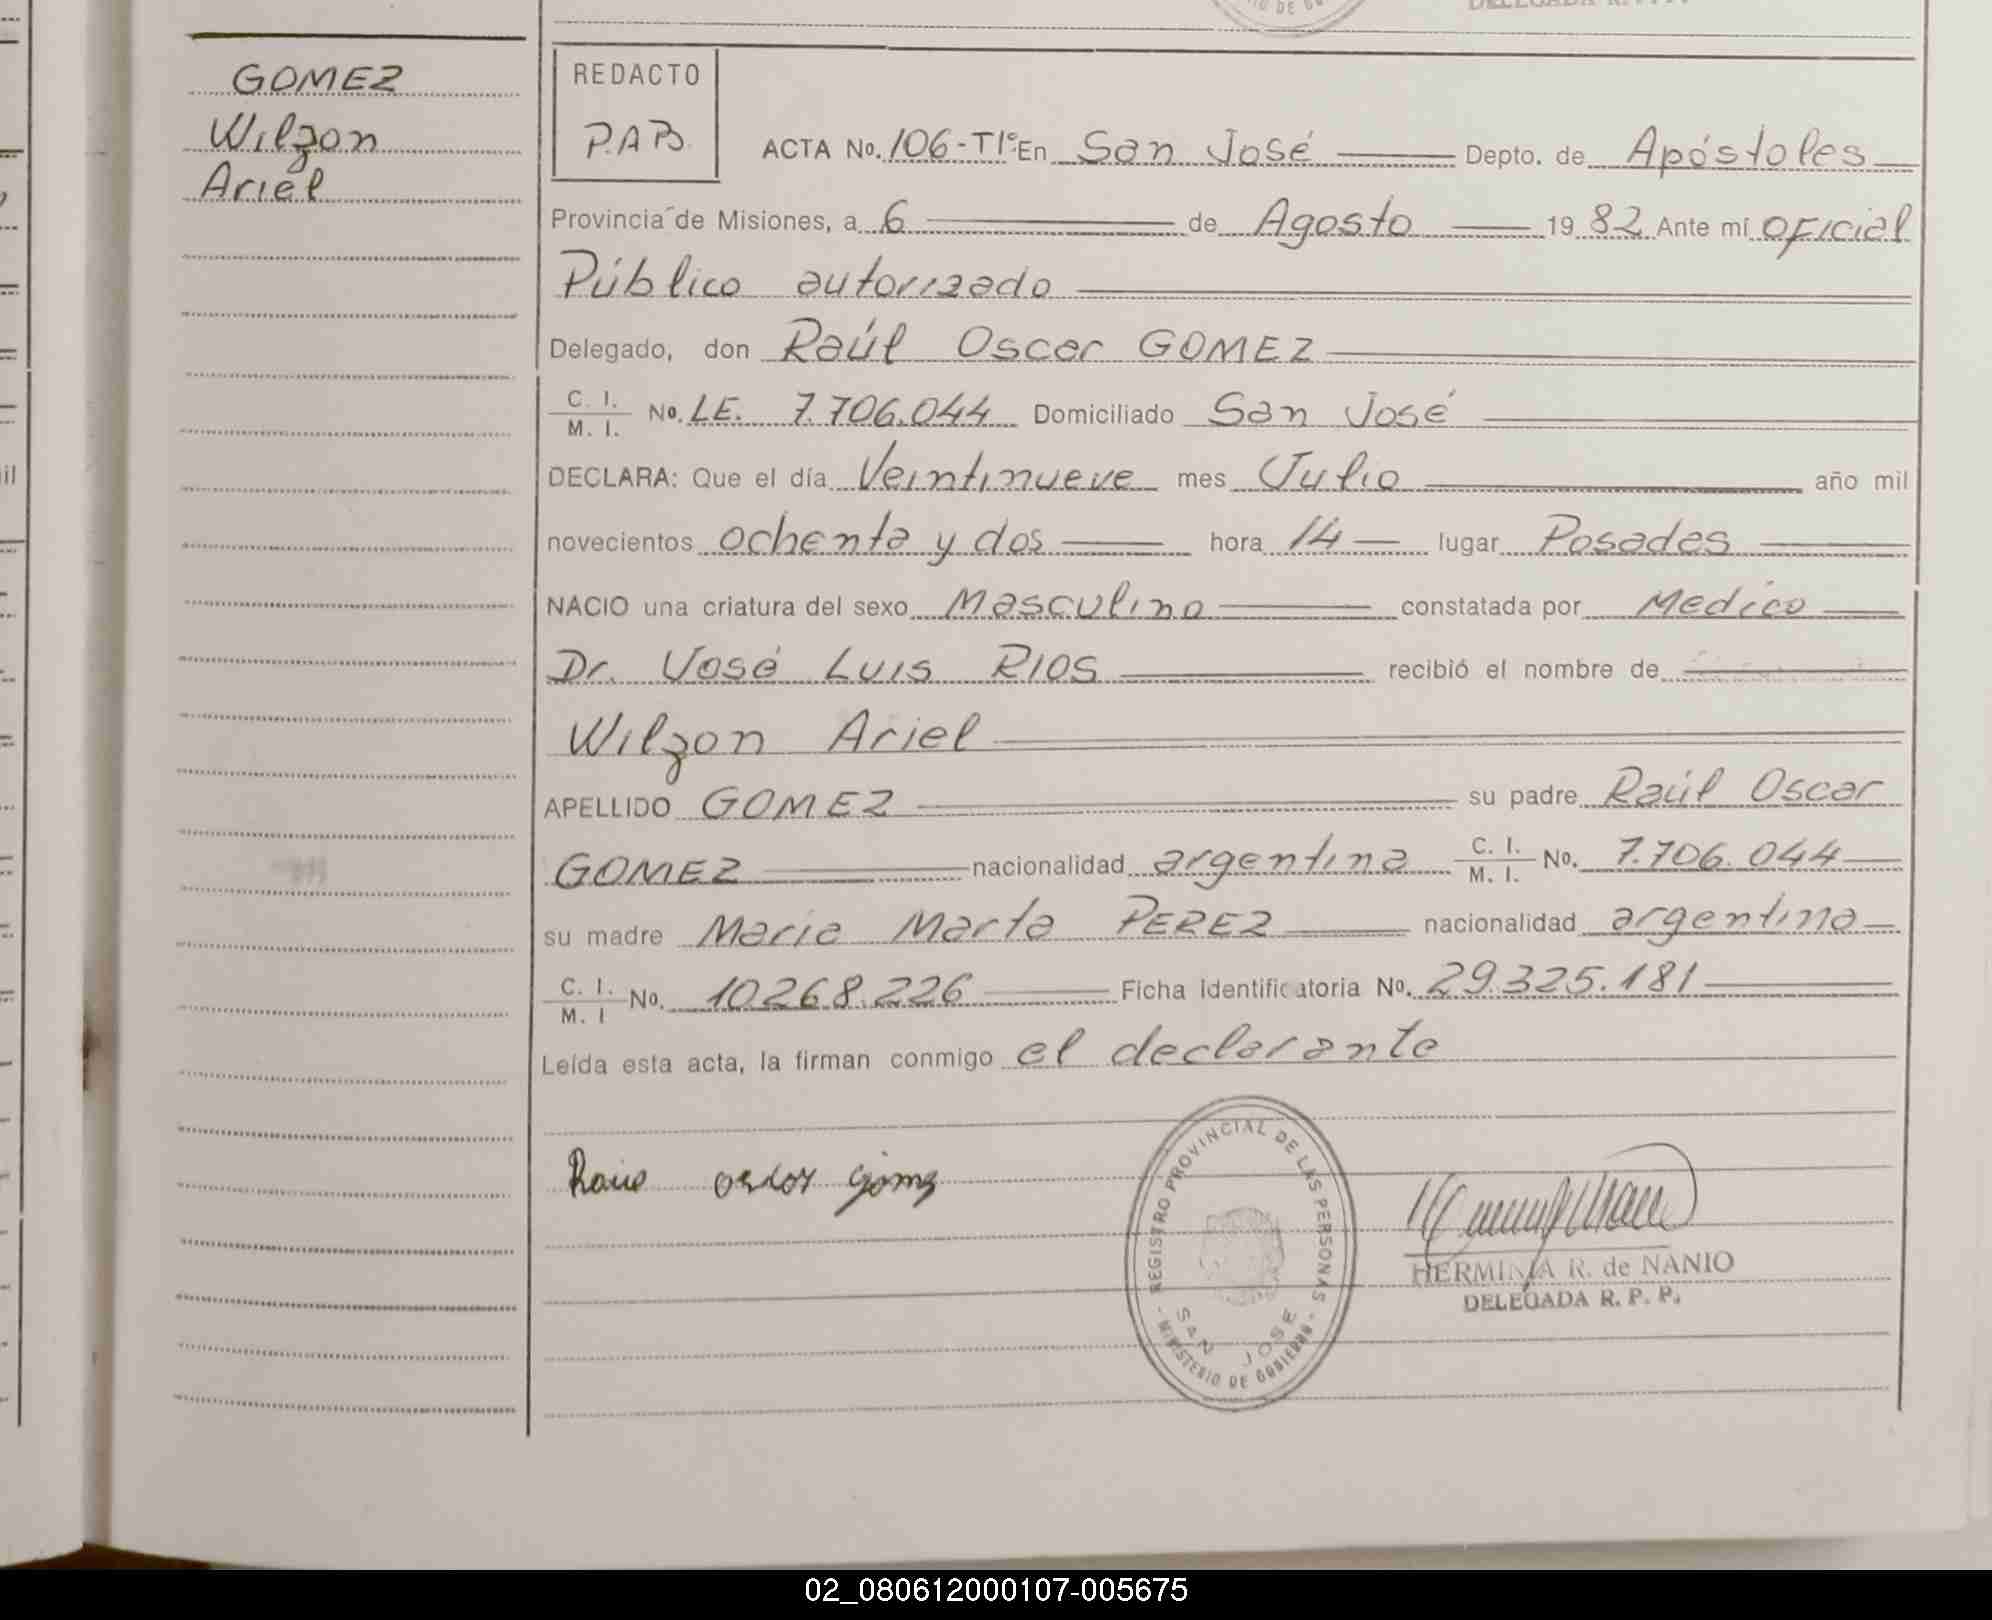 GOMEZ
Wilzon
Ariel
REDACTO
P.A.B.
ACTA No. 106-T1º En San José Depto. de Apóstoles
Provincia de Misiones, a 6 de Agosto 1982 Ante mí Oficial
Público autorizado
Delegado, don Raúl Oscar GOMEZ
C. I.
M. I. No. LE. 7.706.044 Domiciliado San José
DECLARA: Que el día Veintinueve mes Julio año mil
novecientos ochenta y dos hora 14 lugar Posadas
NACIO una criatura del sexo Masculino constatada por Medico
Dr. José Luis RIOS recibió el nombre de
Wilzon Ariel
APELLIDO GOMEZ su padre Raúl Oscar
GOMEZ nacionalidad argentina C. I. M. I. No. 7.706.044
su madre Maria Marta PEREZ nacionalidad argentina
C. I. M. I No. 10.268.226 Ficha Identificatoria No. 29.325.181
Leída esta acta, la firman conmigo el declarante
REGISTRO PROVINCIAL DE LAS PERSONAS
SAN JOSE
MINISTERIO DE GOBIERNO
HERMINIA R. de NANIO
DELEGADA R. P. P.
02_080612000107-005675